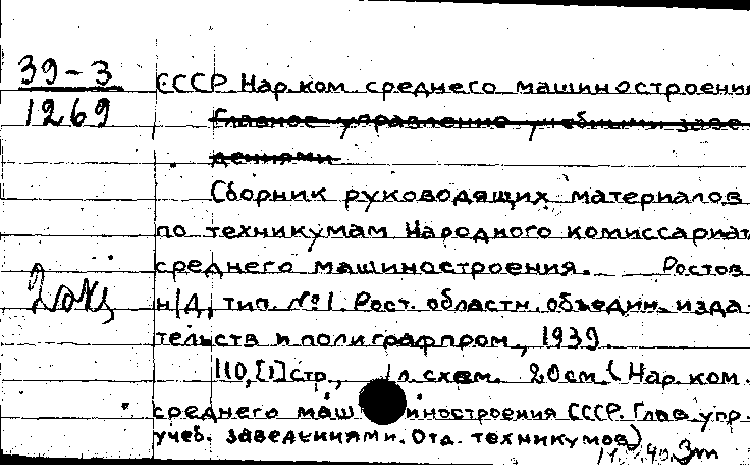 39-3
1269
СССР. Нар. ком. среднего машиностроени
Главное управление учебными заве
дениями
Сборник руководящих материалов
по техникумам Народного комиссариат
среднего машиностроения. Ростов
н/Д, тип. №1. Рост. областн. объедин. изда
тельств и полиграфпром, 1939.
110, [1] стр., 1 л. схем. 20 см. (Нар. ком.
среднего машиностроения СССР. Глав. упр.
учеб. заведениями. Отд. техникумов)
2 экз